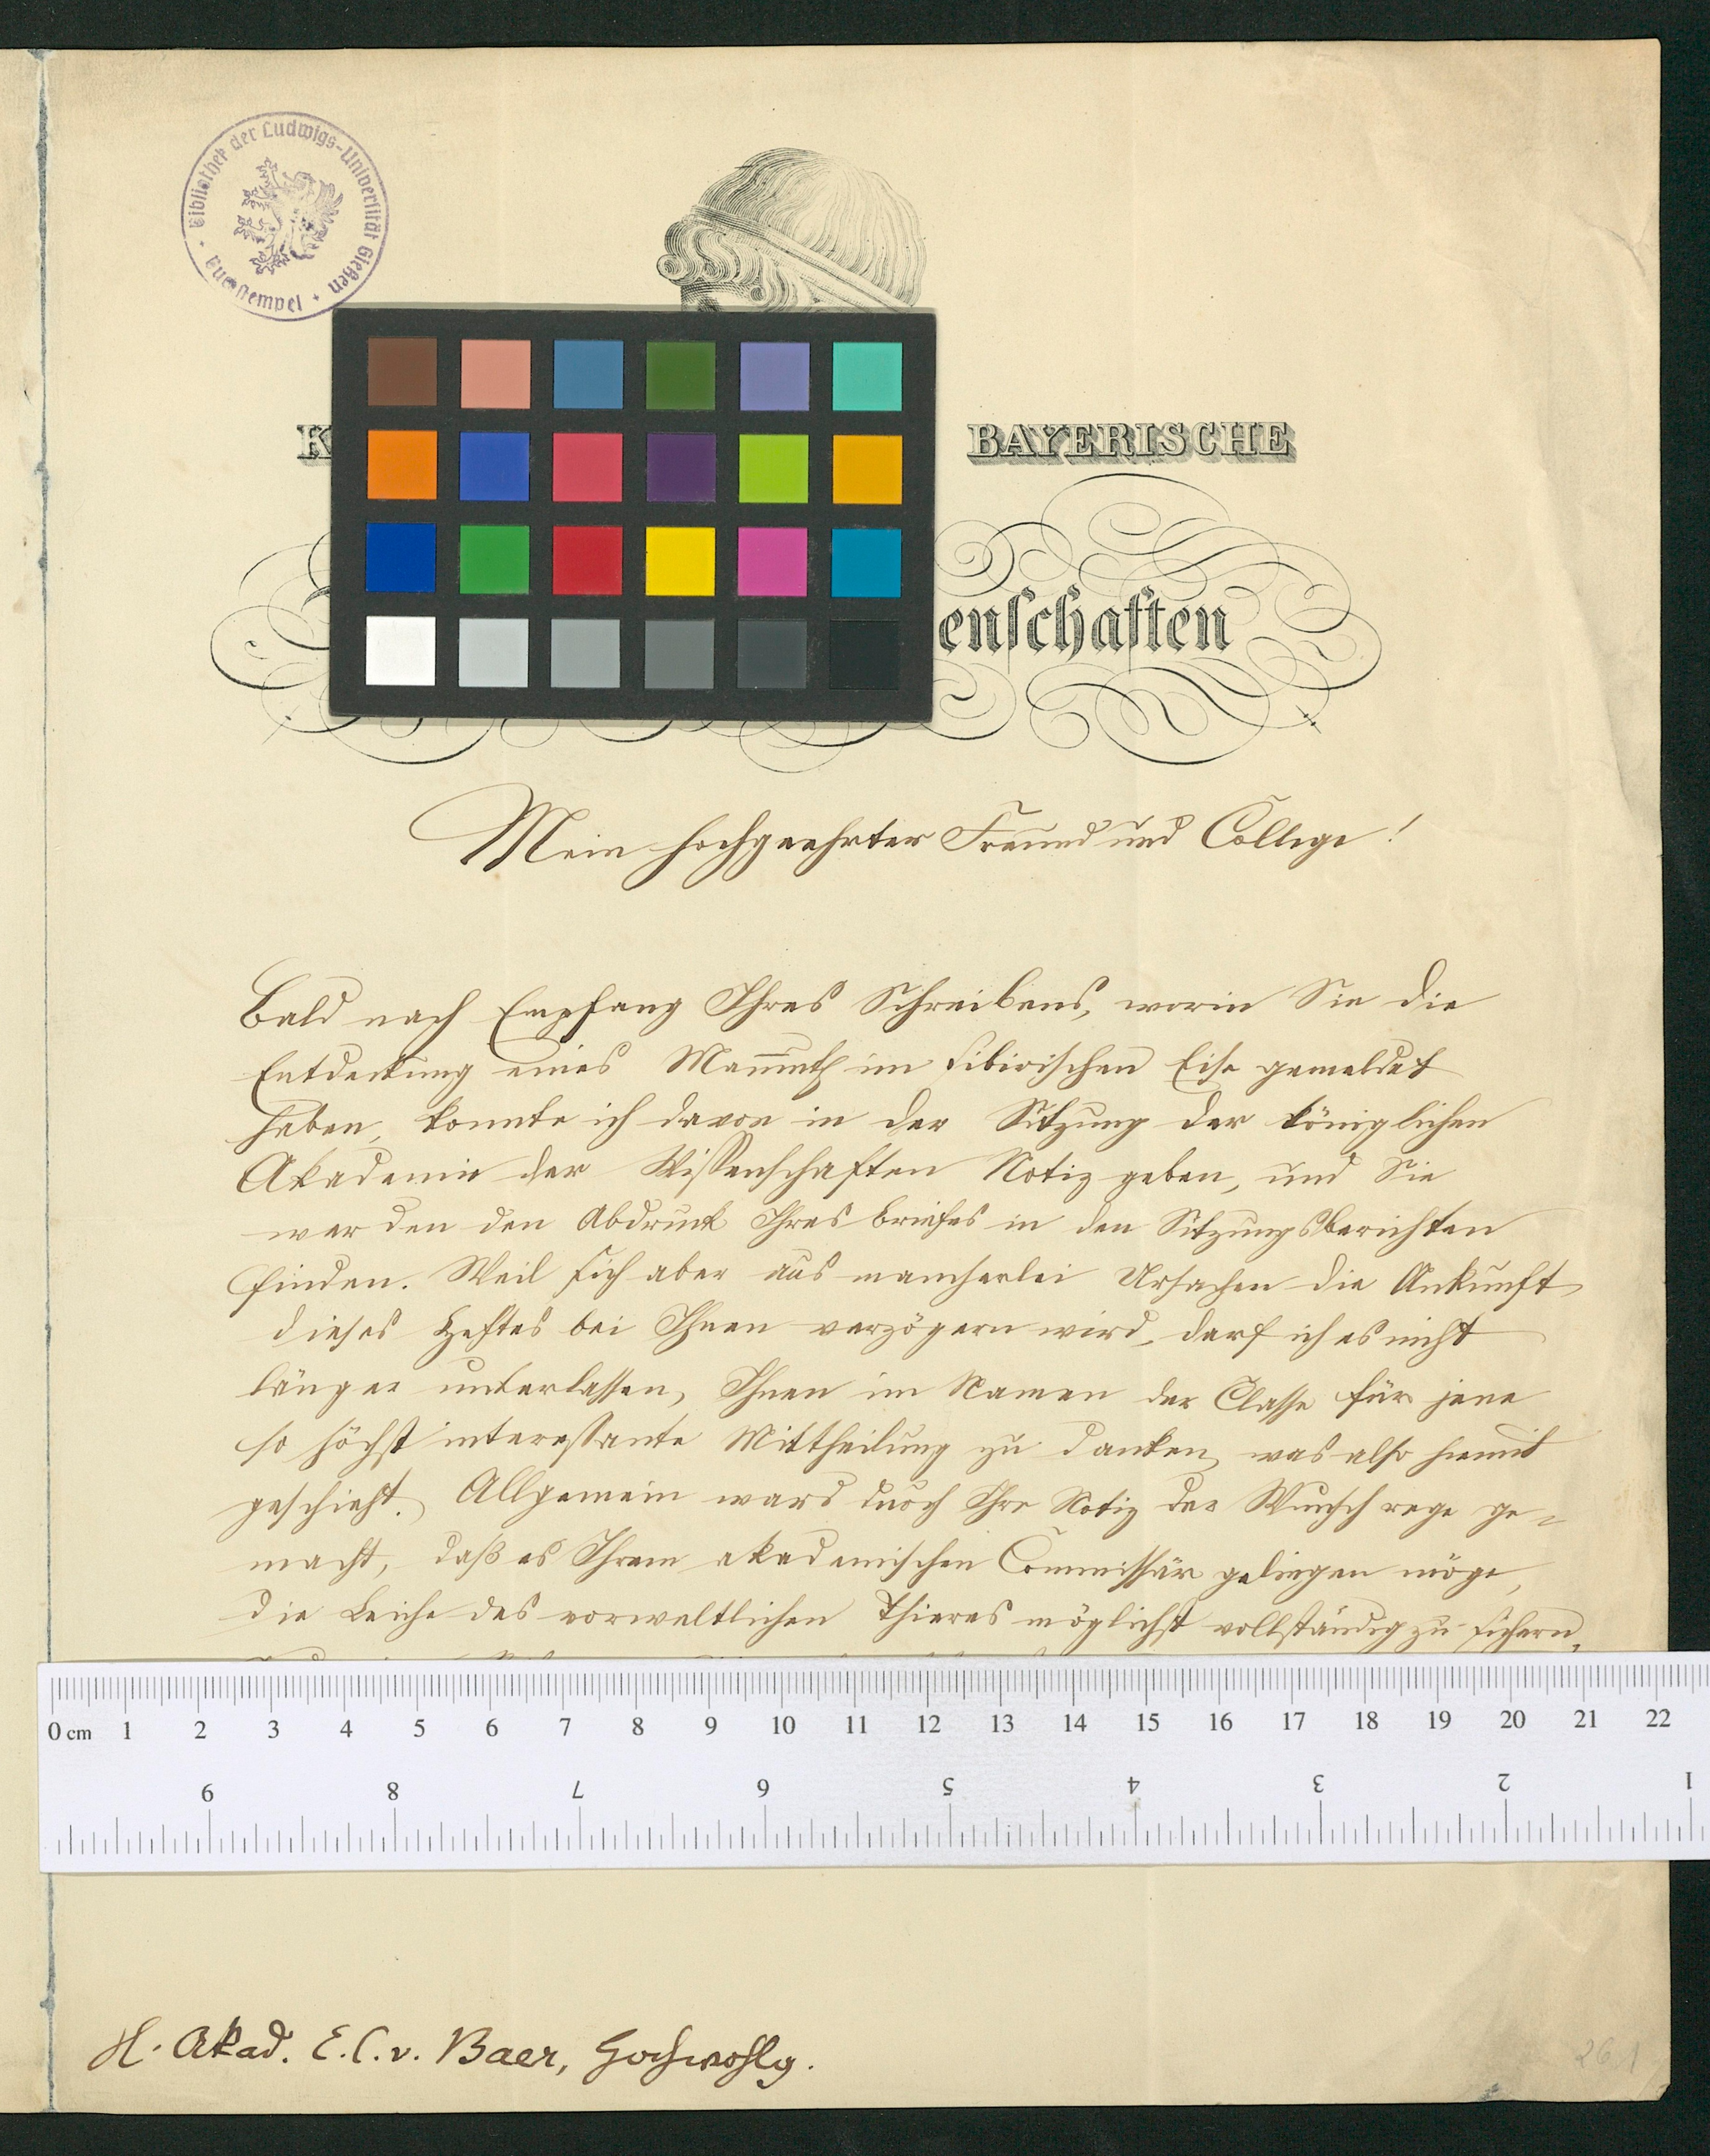 Bibliothek der Ludwigs-Universität Gießen
K
BAYERISCHE
enschaften
Mein hochgeehrter Freund und College!
Bald nach Empfang Ihres Schreibens, worin Sie die
Entdeckung eines Mam̅uth im sibirischen Eise gemeldet
haben, konnte ich davon in der Sitzung der königlichen
Akademie der Wissenschaften Notiz geben, und Sie
werden den Abdruck Ihres Briefes in den Sitzungsberichten
finden. Weil sich aber aus mancherlei Ursachen die Ankunft
dieses Heftes bei Ihnen verzögern wird, darf ich es nicht
länger unterlassen, Ihnen im Namen der Classe für jene
so höchst interessante Mittheilung zu danken, was also hiemit
geschieht. Allgemein ward durch Ihre Notiz der Wunsch rege ge=
macht, daß es Ihrem akademischen Commissär gelingen möge,
die Leiche des vorweltlichen Thieres möglichst vollständig zu sichern,
0 cm 1 2 3 4 5 6 7 8 9 10 11 12 13 14 15 16 17 18 19 20 21 22
9 8 7 6 5 4 3 2 1
H. Akad. E. C. v. Baer, Hochwohlg.
261